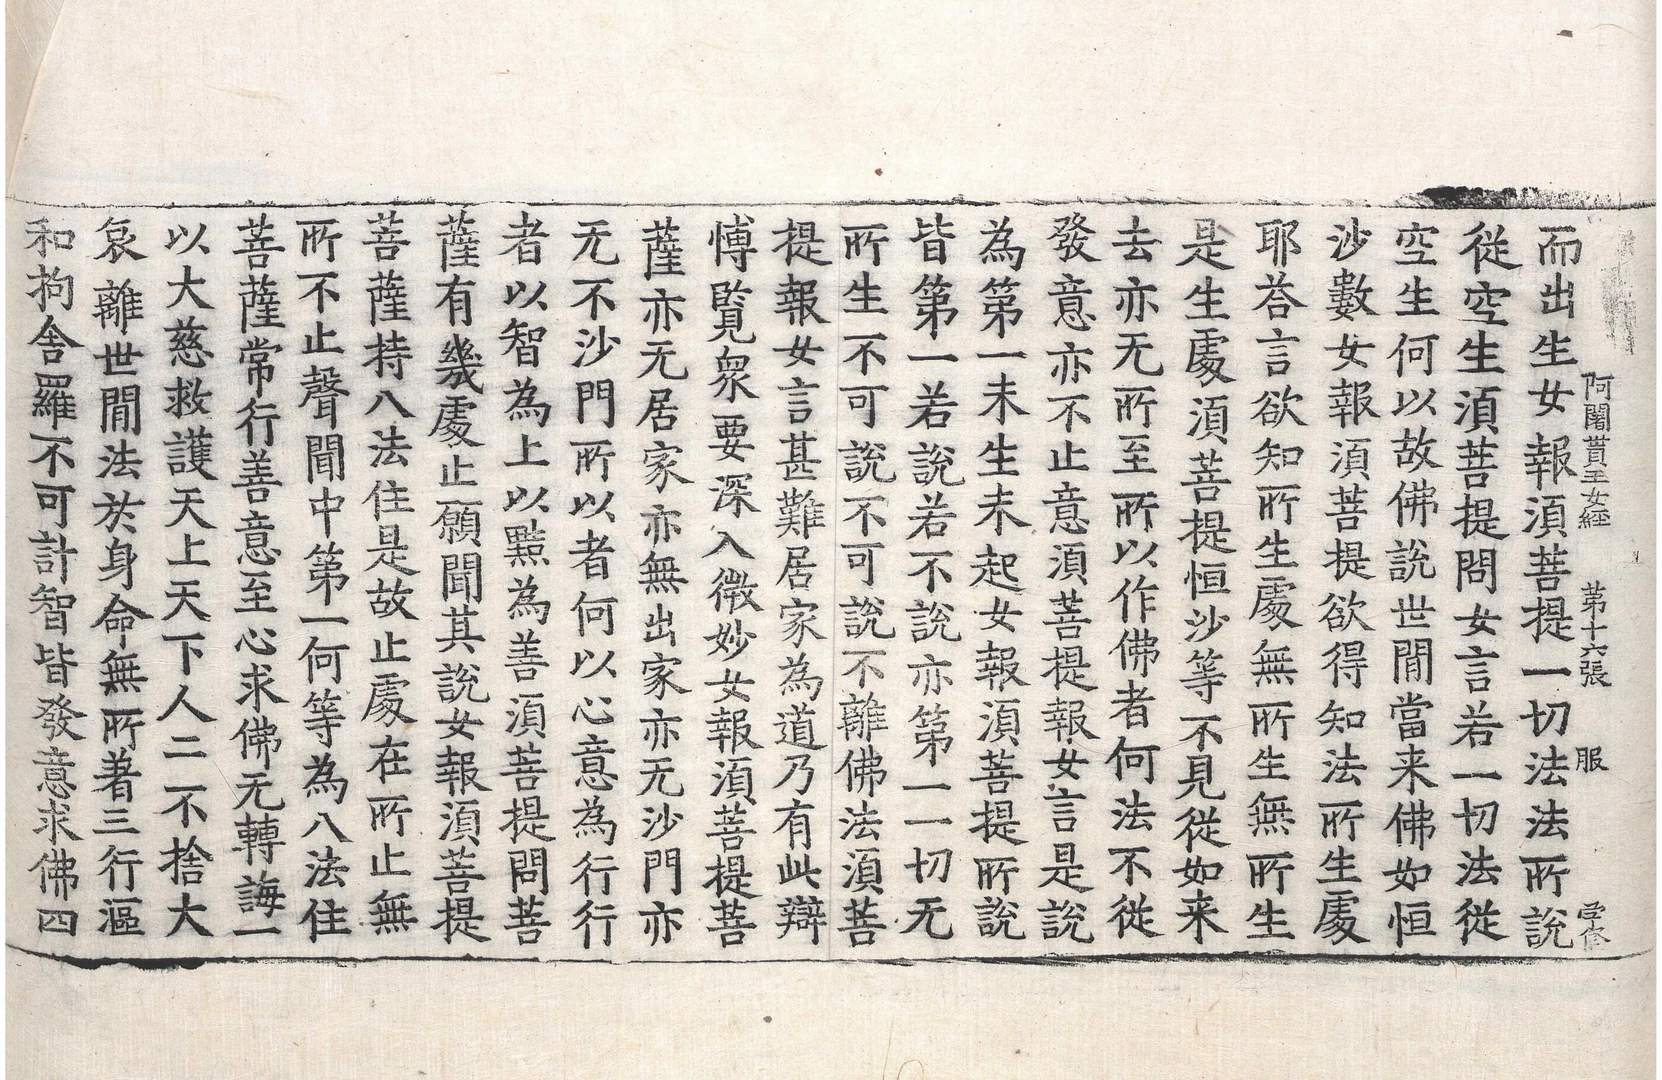 阿闍貰王女經　第十六張　服
而出生女報湏菩提一切法法所說
從空生湏菩提問女言若一切法從
空生何以故佛說世閒當来佛如恒
沙數女報湏菩提欲得知法所生處
耶荅言欲知所生處無所生無所生
是生處湏菩提恒沙等不見從如来
去亦无所至所以作佛者何法不從
發意亦不止意湏菩提報女言是說
為第一未生未起女報湏菩提所說
皆第一若說若不說亦第一一切无
所生不可說不可說不離佛法湏菩
提報女言甚難居家為道乃有此辯
愽覧衆要深入微妙女報湏菩提菩
薩亦无居家亦無出家亦无沙門亦
无不沙門所以者何以心意為行行
者以智為上以黠為善湏菩提問菩
薩有幾處止願聞其說女報湏菩提
菩薩持八法住是故止處在所止無
所不止聲聞中第一何等為八法住
菩薩常行善意至心求佛无轉誨一
以大慈救護天上天下人二不捨大
哀離世閒法於身命無所著三行漚
和拘舍羅不可計智皆發意求佛四